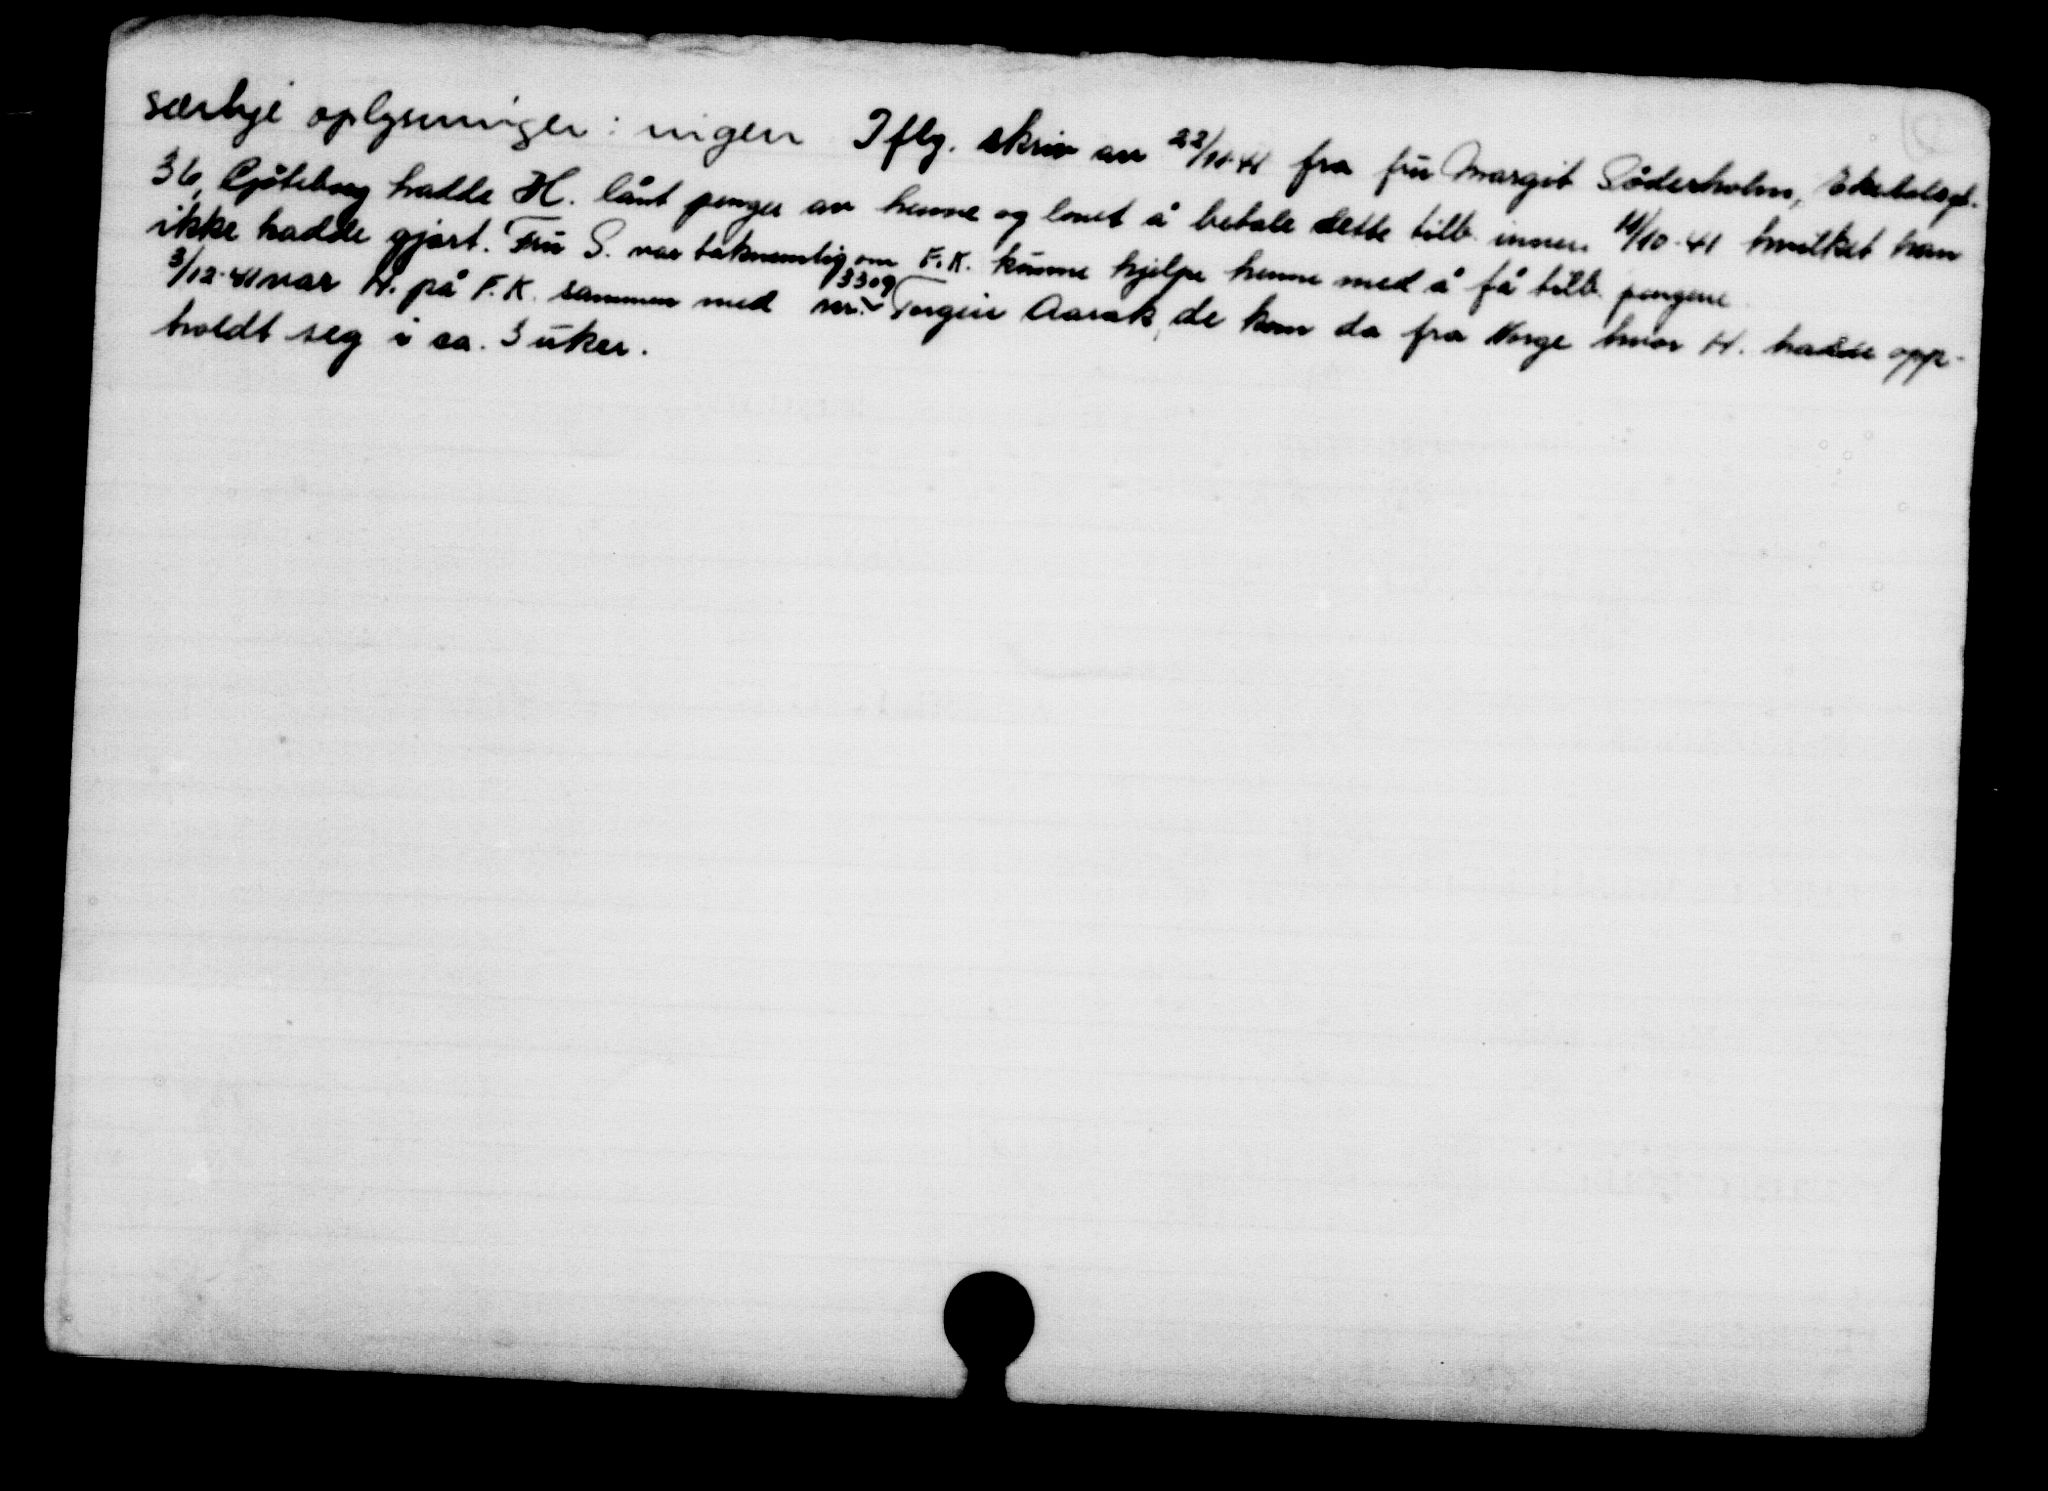 særlige oplysninger: ingen Iflg. skriv av 22/10-41 fra fru Margit Söderholm, Ekebolagt.
36, Gjöteborg hadde H. lånt penger av henne og lovet å betale dette tilb. innen 11/10-41 hvilket han
ikke hadde gjort. Frü S. var taknemlig om F.K. kunne hjelpe henne med å få tilb. pengene
3/12-41 var H. på F.K. sammen med nr. 3309 Torgeir Aarak, de kom da fra Norge hvor H. hadde opp-
holdt seg i ca. 3 uker.